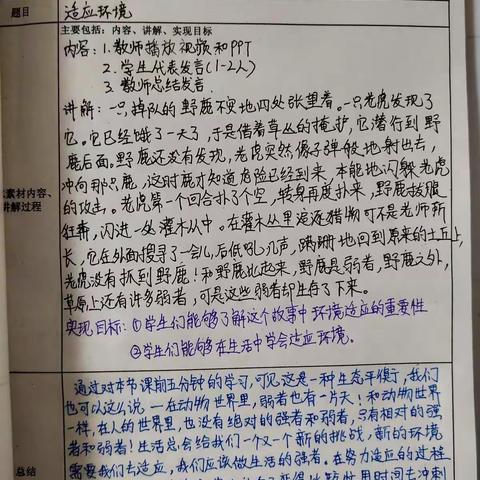 题目 适应环境
主要包括：内容、讲解、实现目标
内容：1.教师播放视频和PPT
2.学生代表发言（1-2人）
3.教师总结发言.
讲解：一只掉队的野鹿不安地四处张望着。一只老虎发现了
它。它已经饿了一天了，于是借着草丛的掩护，它潜行到野
鹿后面。野鹿还没有发现，老虎突然像子弹般地射出去，
冲向那只鹿，这时鹿才知道危险已经到来，本能地闪躲老虎
的攻击。老虎第一个回合扑了个空，转身再度扑来，野鹿拔腿
狂奔，闪进一处灌木丛中。在灌木丛里追逐猎物可不是老师所
长，它在外面搜寻了一会儿，后低吼几声，蹒跚地回到原来的土丘上，
老虎没有抓到野鹿！和野鹿比起来，野鹿是弱者，野鹿之外，
草原上还有许多弱者，可是这些弱者却生存了下来。
实现目标：①学生们能够了解这个故事中环境适应的重要性
②学生们能够在生活中学会适应环境。
素材内容、
讲解过程
通过对本节课前五分钟的学习，可见这是一种生态平衡，我们
也可以这么说—在动物世界里，弱者也有一片天！和动物世界
一样，在人的世界里，也没有绝对的强者和弱者，只有相对的强
者和弱者！生活总会给我们一个又一个新的挑战，新的环境
需要我们去适应，我们应该做生活的强者。在努力适应的过程
总结